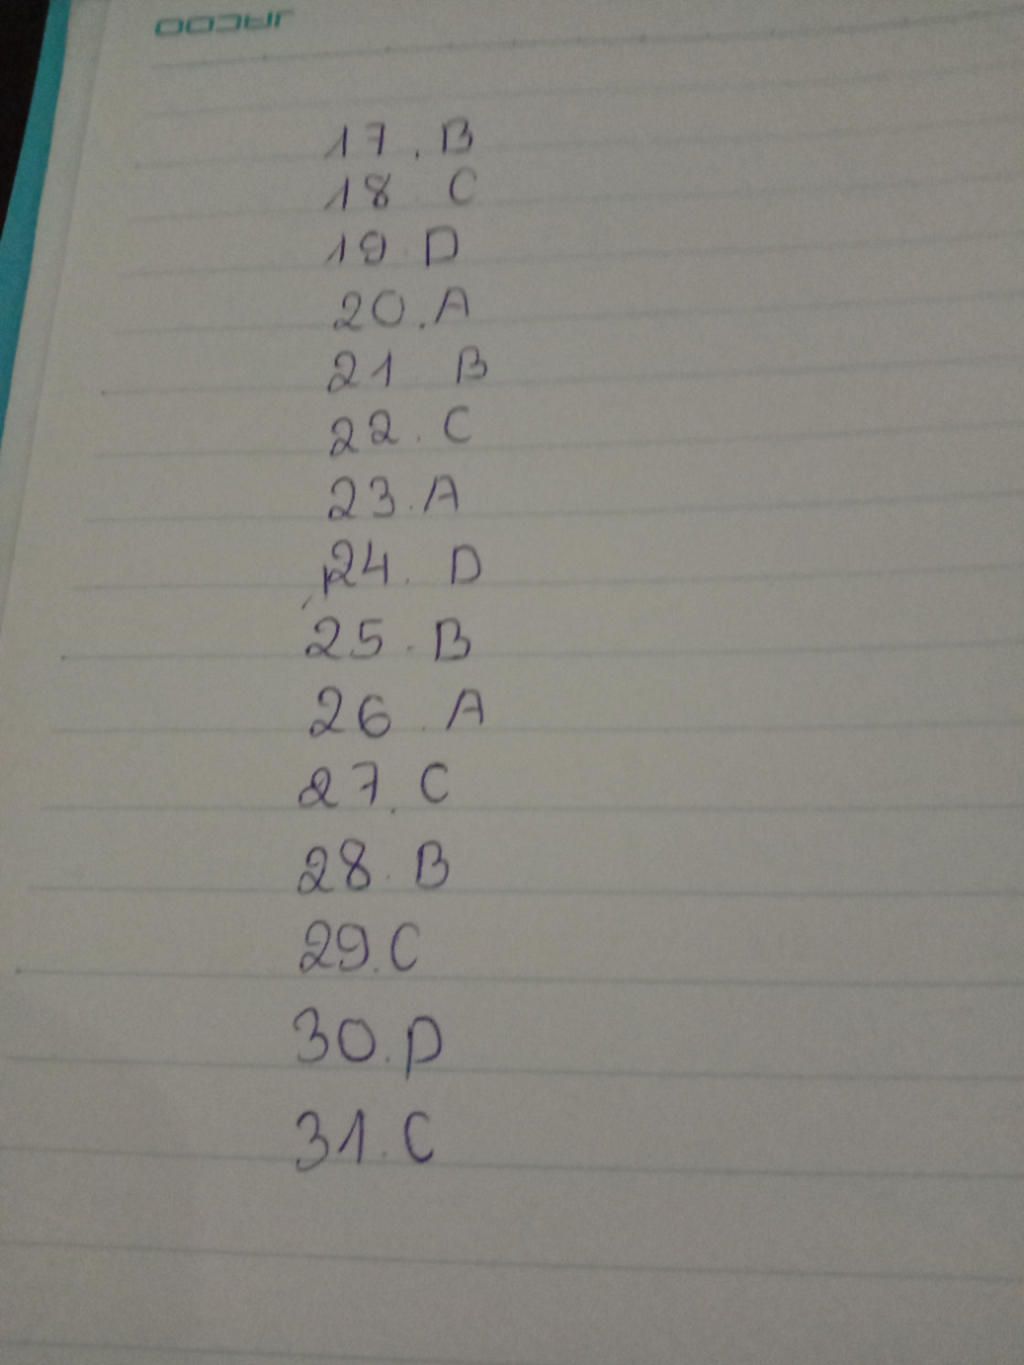 JACOO
17. B
18 C
19. D
20. A
21 B
22. C
23. A
24. D
25. B
26. A
27. C
28. B
29. C
30. D
31. C